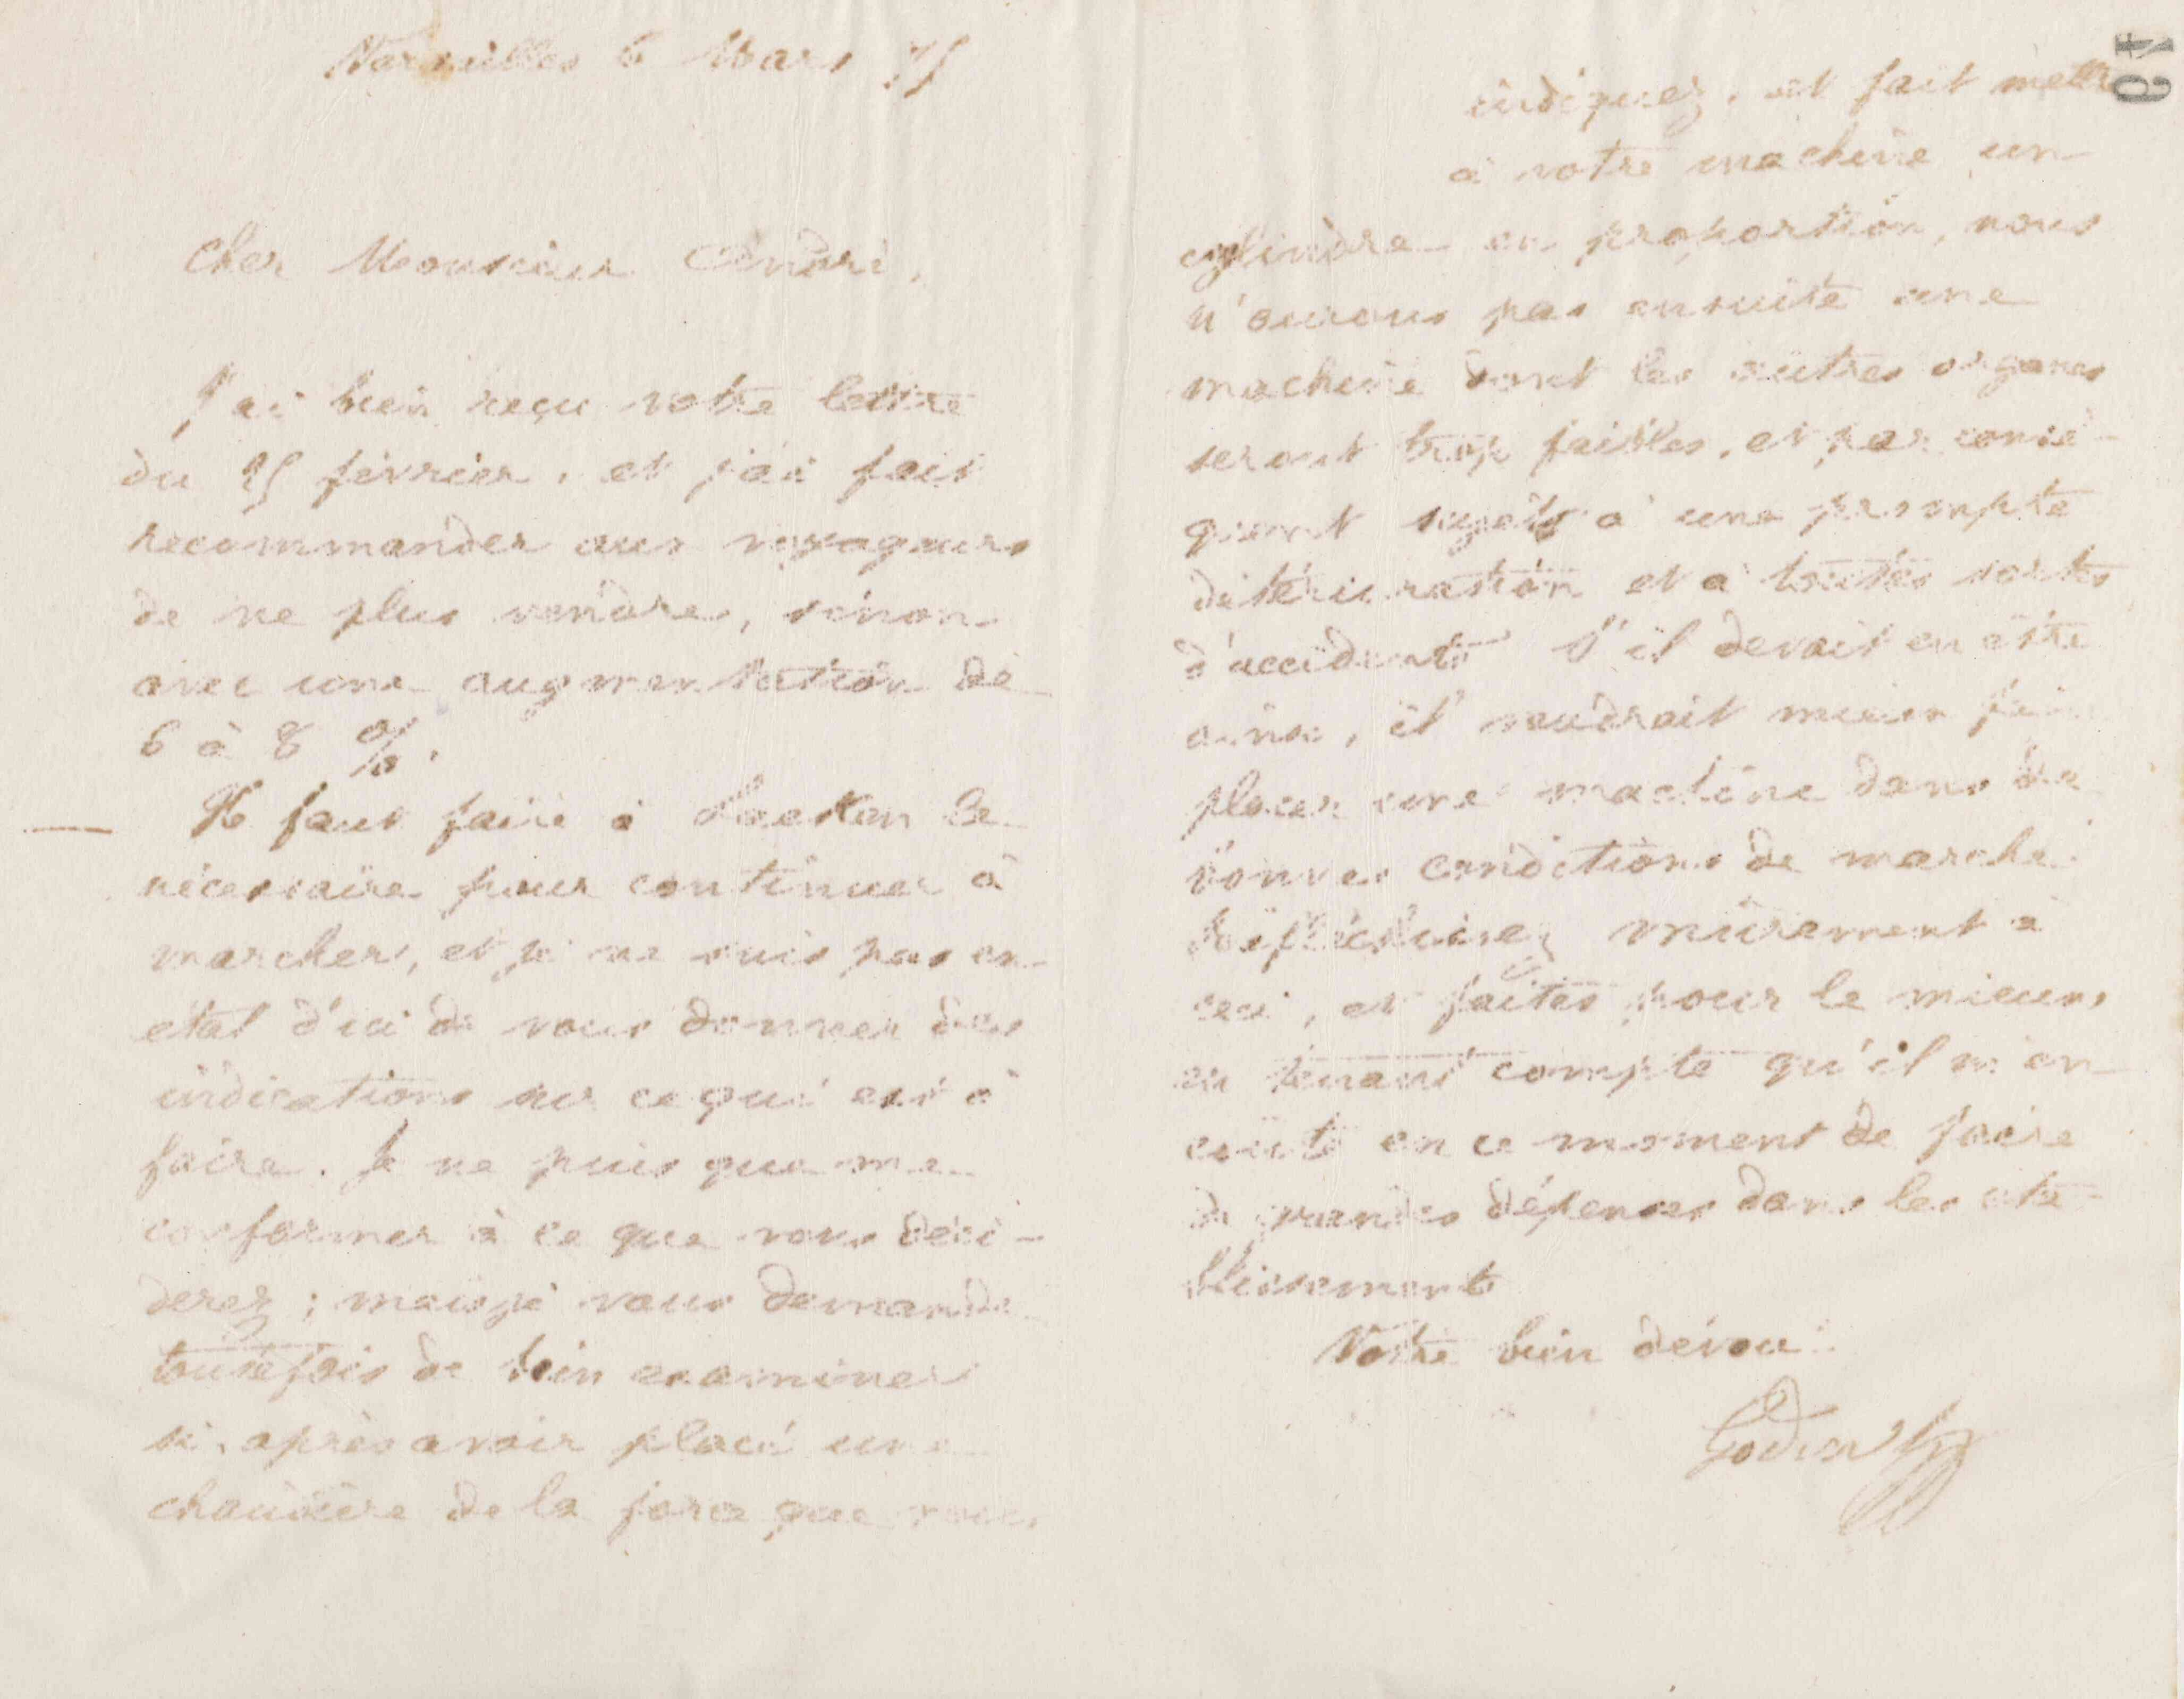 Versailles 6 Mars 75
Cher Monsieur André,
J'ai bien reçu votre lettre
du 25 février, et j'ai fait
recommander aux voyageurs
de ne plus vendre, sinon
avec une augmentation de
6 à 8 %.
Il faut faire à Laeken le
nécessaire pour continuer à
marcher, et je ne suis pas en
état d'ici de vous donner des
indications sur ce qui est à
faire. Je ne puis que me
conformer à ce que vous déci-
derez ; mais je vous demande
toutefois de bien examiner
si, après avoir placé une
chaudière de la force que vous
indiquez, et fait mettre
à votre machine un
cylindre en proportion, nous
n'aurons pas ensuite une
machine dont les autres organes
seront trop faibles, et par consé-
quent sujets à une prompte
détérioration et à toutes sortes
d'accidents S'il devait en être
ainsi, il vaudrait mieux faire
placer une machine dans de
bonnes conditions de marche.
Réfléchissez mûrement à
ceci, et faites pour le mieux,
en tenant compte qu'il m'en
coûte en ce moment de faire
de grandes dépenses dans les éta-
blissements
Votre bien dévoué
Godin
19